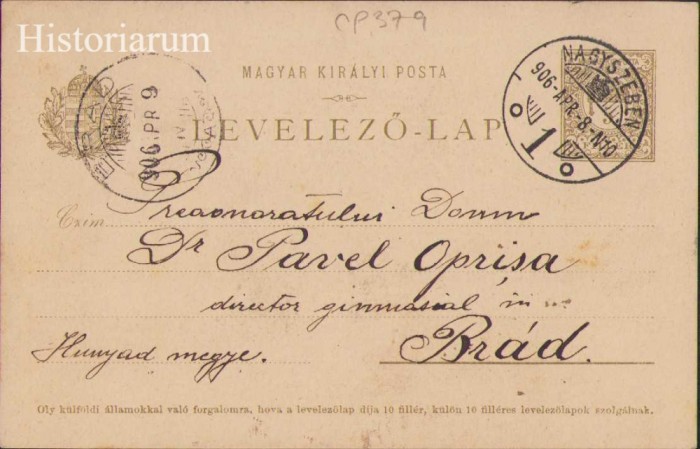 CP379
Historiarum
MAGYAR KIRÁLYI POSTA
LEVELEZŐ-LAP
NAGYSZEBEN
906-APR-8-N10
1
BRÁD
906 APR 9
Czím
Preaonoratului Domn
Dr Pavel Oprisa
director gimnasial in
Hunyad megye.
Brád.
Oly külföldi államokkal való forgalomra, hova a levelezőlap díja 10 fillér, külön 10 filléres levelezőlapok szolgálnak.